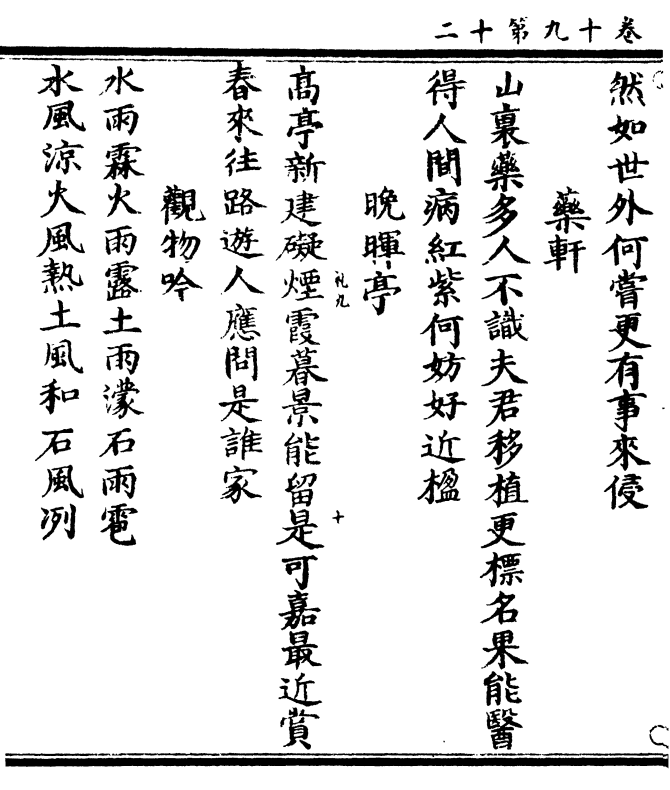 卷十九第十二
然如世外何嘗更有事來侵
藥軒
山裏藥多人不識夫君移植更標名果能醫
得人間病紅紫何妨好近楹
晚暉亭
礼九
十
高亭新建礙煙霞暮景能留是可嘉最近賞
春來往路遊人應問是誰家
觀物吟
水雨霖火雨露土雨濛石雨雹
水風涼火風熱土風和石風冽